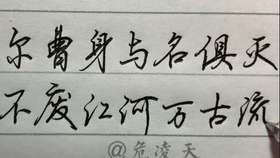 尔曹身与名俱灭
不废江河万古流
@危凌天